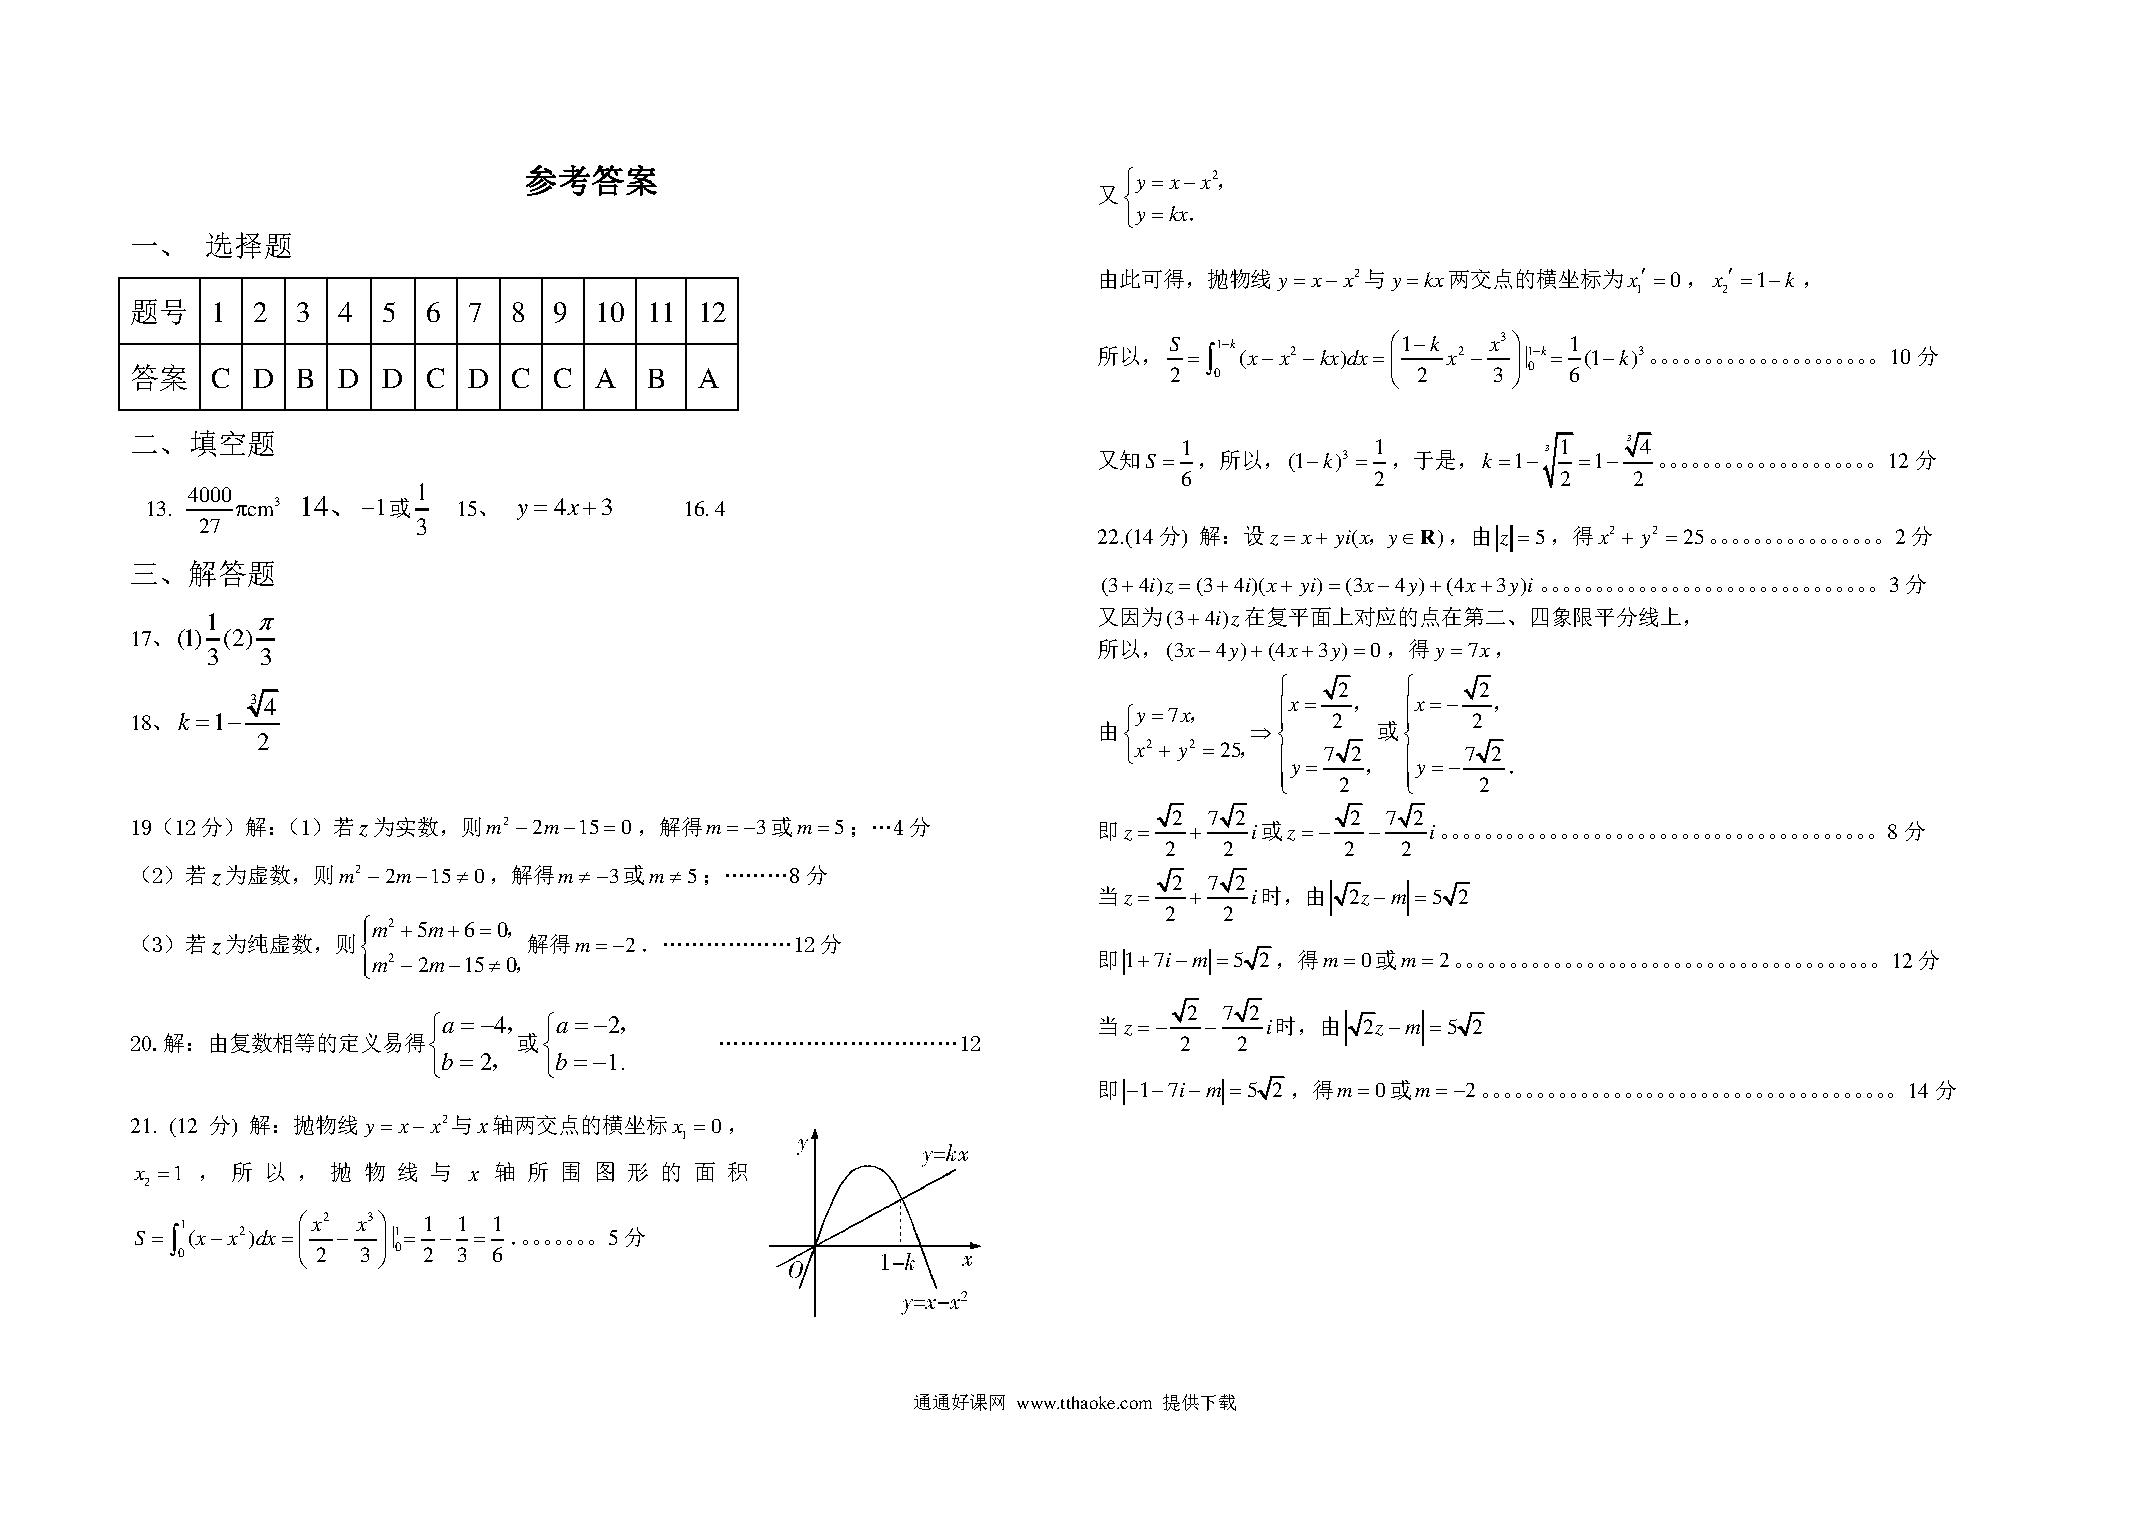 参考答案
一、 选择题
题号 1 2 3 4 5 6 7 8 9 10 11 12
答案 C D B D D C D C C A B A
二、填空题
13. 4000/27 πcm³ 14、 −1或1/3 15、 y = 4x + 3 16. 4
三、解答题
17、(1) 1/3 (2) π/3
18、k = 1 − ∛4/2
19（12分）解：（1）若z为实数，则m² − 2m − 15 = 0，解得m = −3或m = 5；…4分
（2）若z为虚数，则m² − 2m − 15 ≠ 0，解得m ≠ −3或m ≠ 5；………8分
（3）若z为纯虚数，则{m² + 5m + 6 = 0, m² − 2m − 15 ≠ 0, 解得m = −2．………………12分
20.解：由复数相等的定义易得{a = −4, b = 2, 或{a = −2, b = −1. ……………………………12
21. (12 分) 解：抛物线 y = x − x²与x轴两交点的横坐标x₁ = 0，
x₂ = 1 ，所以，抛物线与 x 轴所围图形的面积
S = ∫₀¹(x − x²)dx = (x²/2 − x³/3)|₀¹ = 1/2 − 1/3 = 1/6 .。。。。。。。。5分
y
y=kx
O
1−k
x
y=x−x²
又{y = x − x², y = kx.
由此可得，抛物线 y = x − x²与 y = kx两交点的横坐标为x₁′ = 0，x₂′ = 1 − k，
所以，S/2 = ∫₀¹⁻ᵏ(x − x² − kx)dx = ((1−k)/2 x² − x³/3)|₀¹⁻ᵏ = 1/6(1 − k)³。。。。。。。。。。。。。。。。。。。。。10分
又知S = 1/6，所以，(1 − k)³ = 1/2，于是，k = 1 − ∛(1/2) = 1 − ∛4/2。。。。。。。。。。。。。。。。。。。。12分
22.(14分) 解：设z = x + yi(x, y ∈ R)，由|z| = 5，得x² + y² = 25。。。。。。。。。。。。。。。。2分
(3 + 4i)z = (3 + 4i)(x + yi) = (3x − 4y) + (4x + 3y)i。。。。。。。。。。。。。。。。。。。。。。。。。。。。。。。3分
又因为(3 + 4i)z在复平面上对应的点在第二、四象限平分线上，
所以，(3x − 4y) + (4x + 3y) = 0，得y = 7x，
由{y = 7x, x² + y² = 25, ⇒ {x = √2/2, y = 7√2/2, 或{x = −√2/2, y = −7√2/2.
即z = √2/2 + 7√2/2 i或z = −√2/2 − 7√2/2 i。。。。。。。。。。。。。。。。。。。。。。。。。。。。。。。。。。。。。。。。8分
当z = √2/2 + 7√2/2 i时，由|√2z − m| = 5√2
即|1 + 7i − m| = 5√2，得m = 0或m = 2。。。。。。。。。。。。。。。。。。。。。。。。。。。。。。。。。。。。。。。12分
当z = −√2/2 − 7√2/2 i时，由|√2z − m| = 5√2
即|−1 − 7i − m| = 5√2，得m = 0或m = −2。。。。。。。。。。。。。。。。。。。。。。。。。。。。。。。。。。。。。。14分
通通好课网 www.tthaoke.com 提供下载